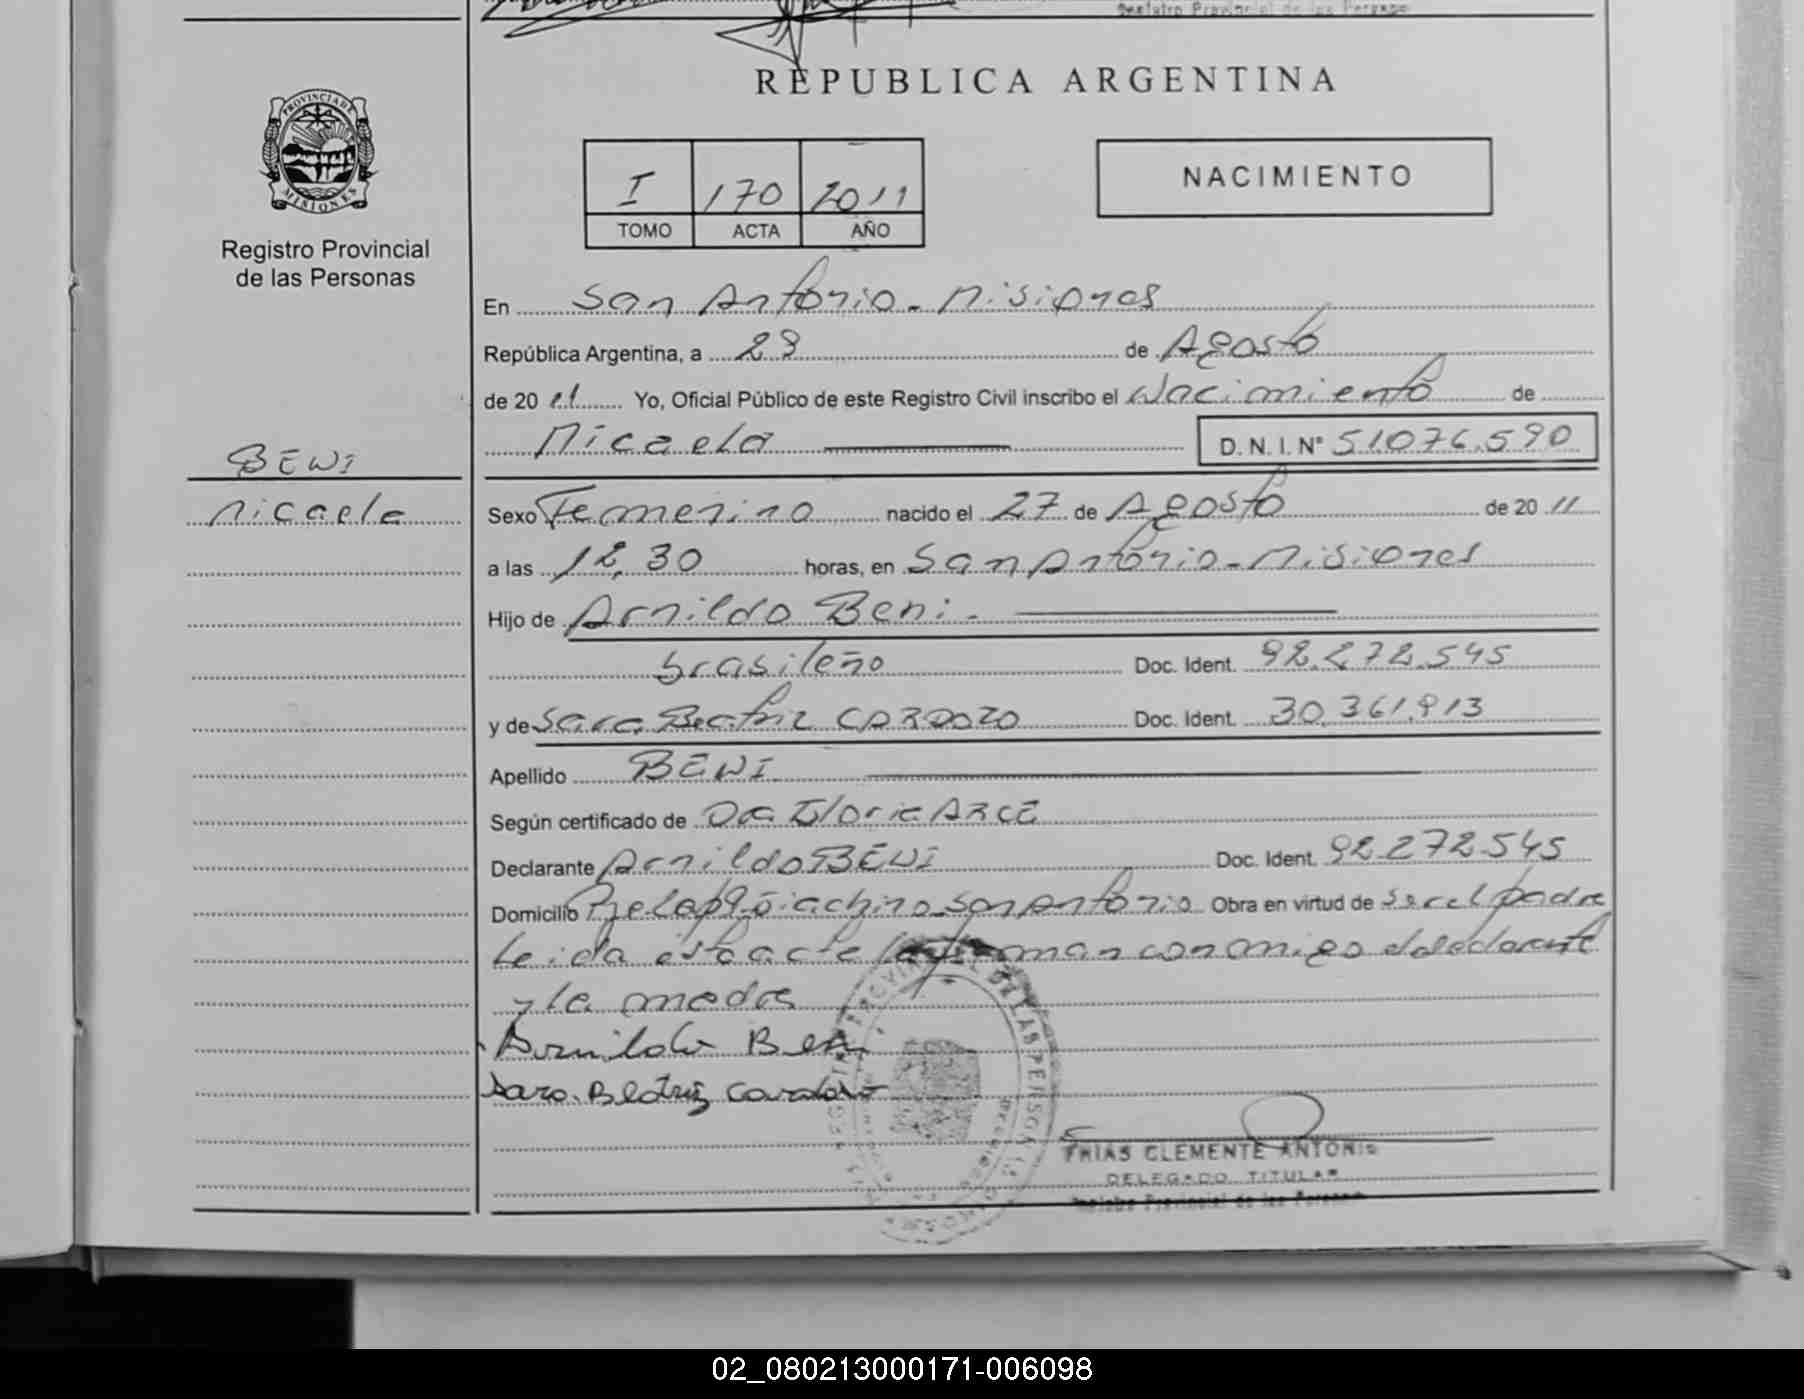 REPUBLICA ARGENTINA
PROVINCIA DE
MISIONES
Registro Provincial
de las Personas
I 170 2011
TOMO ACTA AÑO
NACIMIENTO
En San Antonio - Misiones
República Argentina, a 29 de Agosto
de 20 11 Yo, Oficial Público de este Registro Civil inscribo el Nacimiento de
Micaela D. N. I. Nº 51.076.590
BENI
Micaela
Sexo Femenino nacido el 27 de Agosto de 20 11
a las 12,30 horas, en San Antonio - Misiones
Hijo de Arnildo Beni.
brasileño Doc. Ident. 92.272.545
y de Sara Beatriz CARDOZO Doc. Ident. 30.361.913
Apellido BENI
Según certificado de Dra Gloria ARCE
Declarante Arnildo BENI Doc. Ident. 92.272.545
Domicilio San Antonio Obra en virtud de ser el padre
Leida esta acta la firman conmigo el declarante
y la madre
Arnildo Beni
Sara Beatriz Cardozo
FRIAS CLEMENTE ANTONIO
DELEGADO TITULAR
Registro Provincial de las Personas
02_080213000171-006098